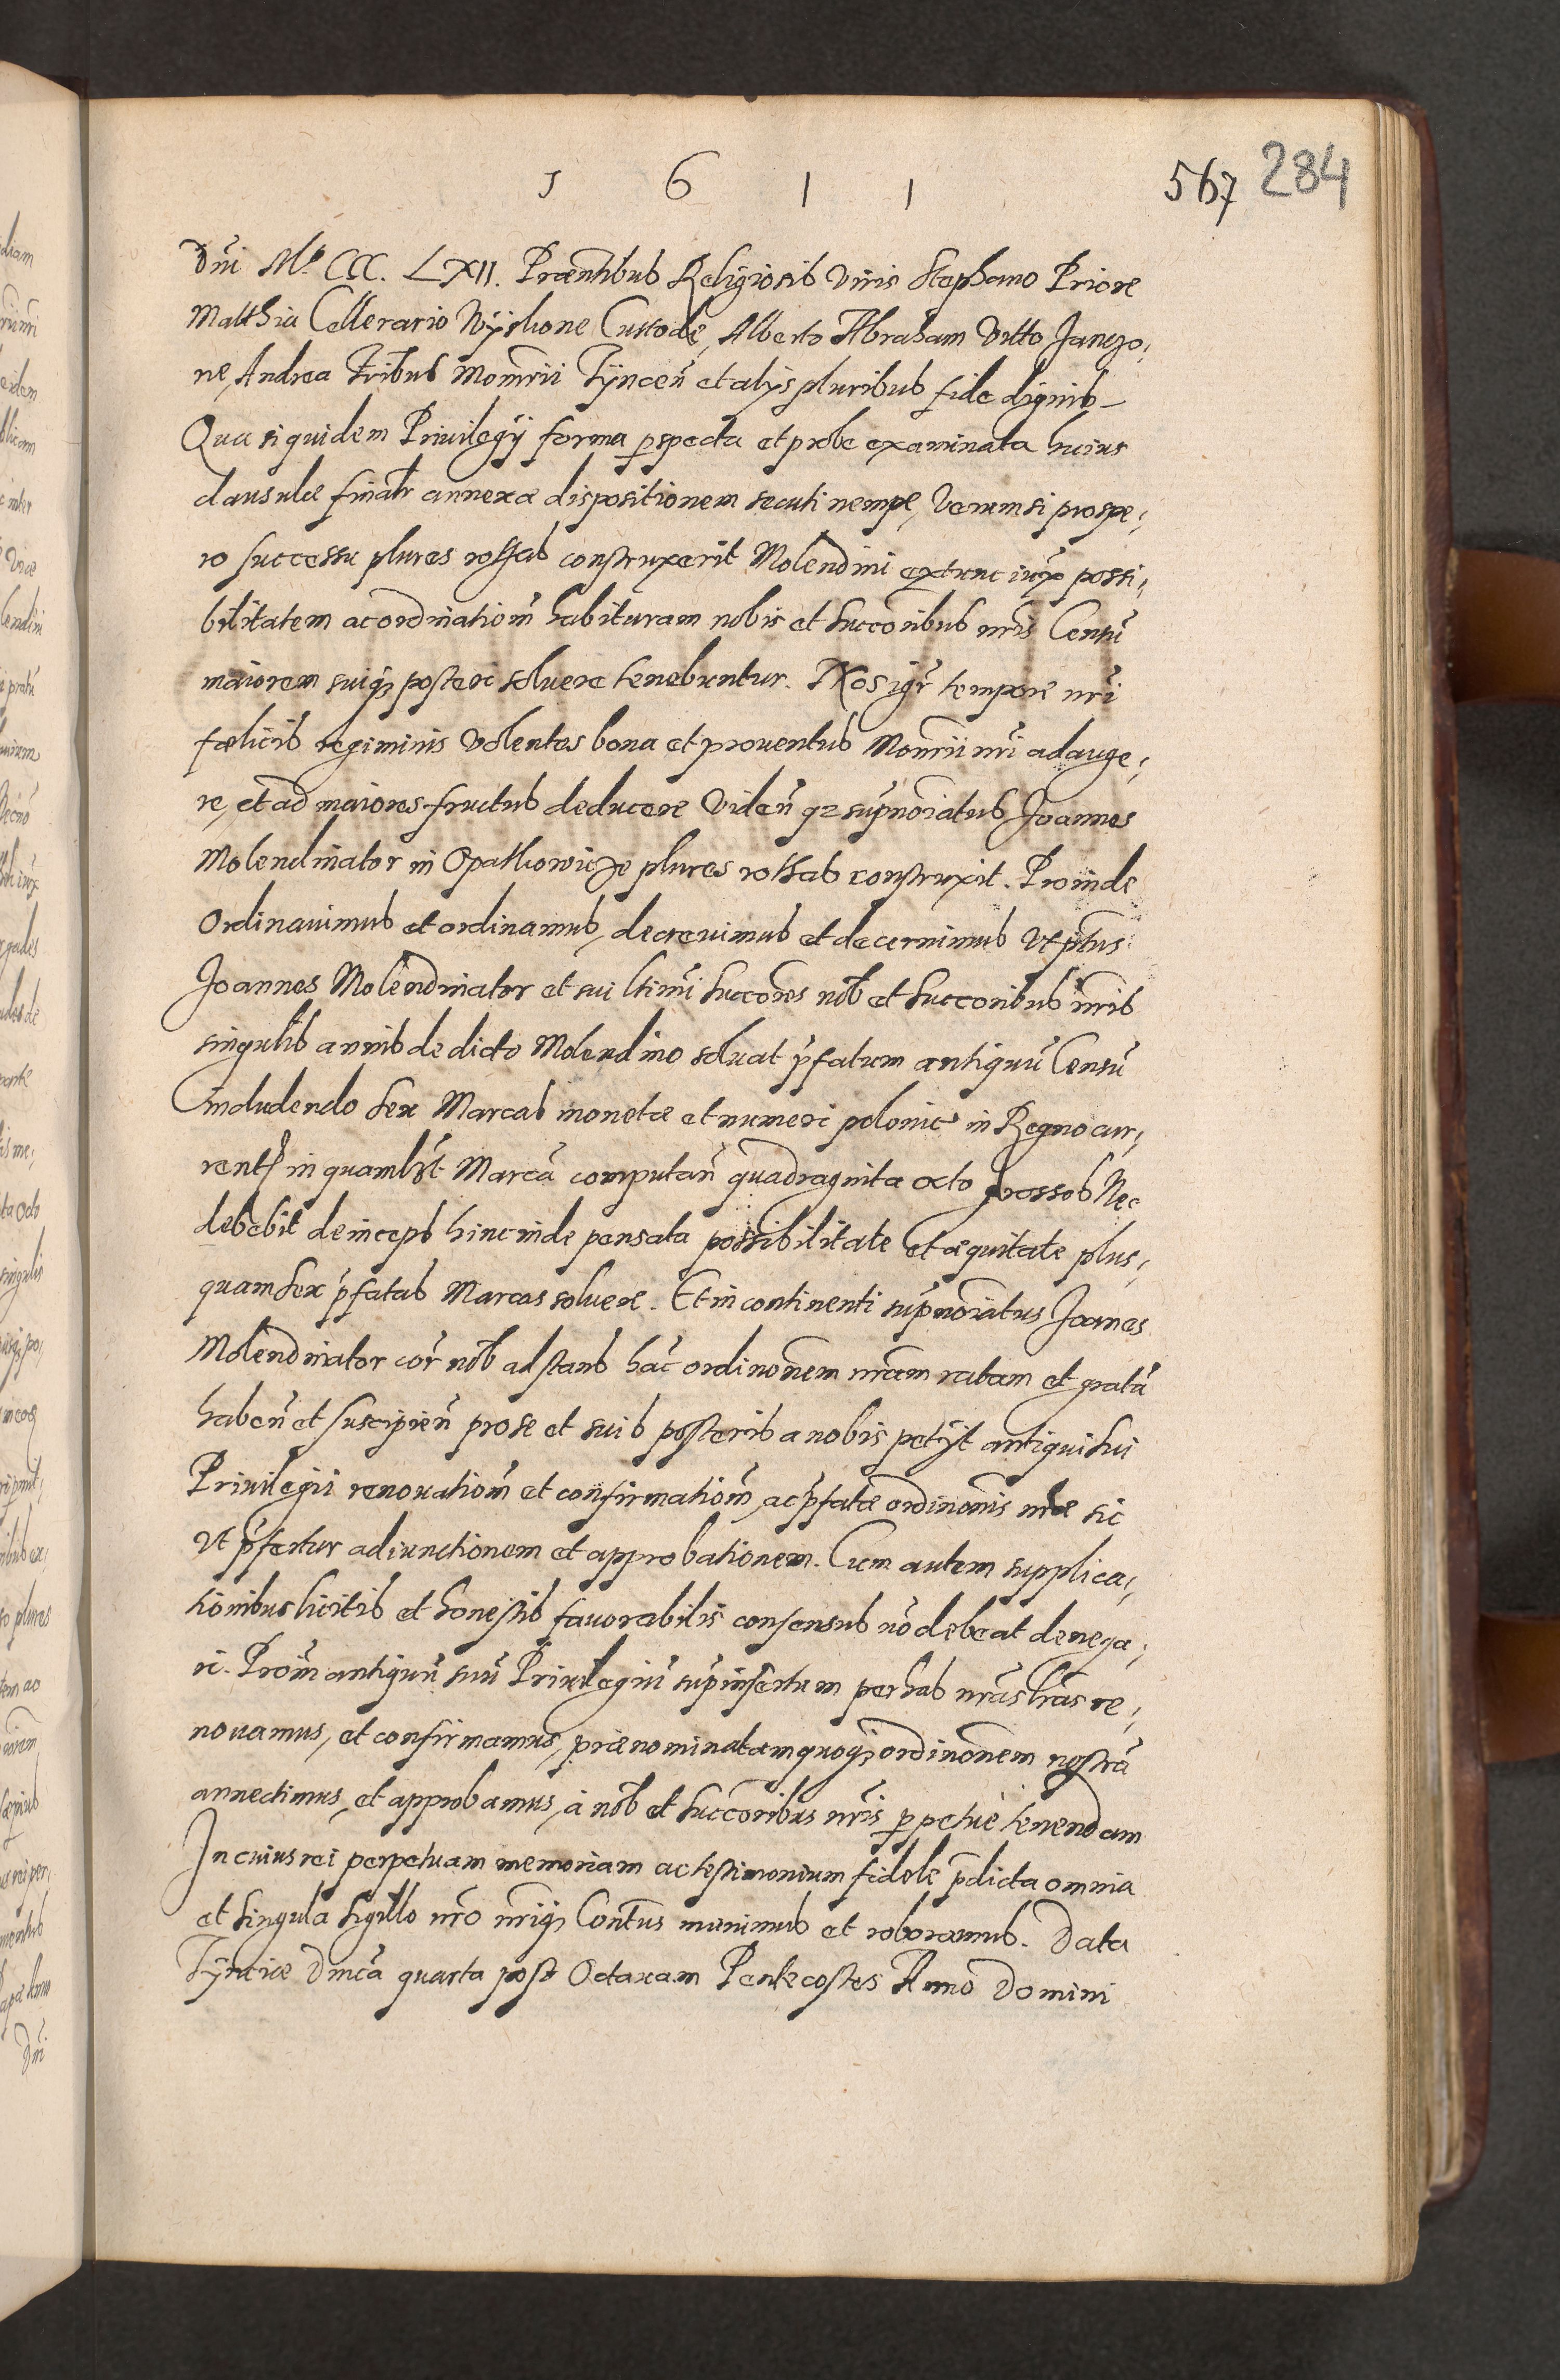 1 6 1 1
567 284
Dñi Mº CCC. LXII. Praeñtibus Religiosis Viris Stephano Priore
Matthia Cellerario Custode, Alberto Abraham Vitto Janczo¬
ne, Andrea Fribus Monrii Tÿnceñ et alÿs pluribus fide dignis
Qua siquidem Priuilegÿ forma perspecta et probe examinata huius
clausulae finalr annexae dispositionem secuti nempe, Verum si prospe¬
ro successu plures rottas construxerit Molendini extunc iux possi¬
bilitatem ac ordinatiom habituram nobis et succoribus nris Censũ
maiorem suiq; posteri soluere tenebuntur. Nos igr tempore nri
faelicis regiminis Volentes bona et prouentus Monrii nri adauge¬
re, et ad maiores fructus deducere Videñ qz supnoiatus Joannes
Molendinator in Opatkowicze plures rottas construxit. Proinde
Ordinauimus et ordinamus, decreuimus et decernimus Vt pñtus
Joannes Molendinator et sui ltimi succores nob et succoribus nris
singulis annis de dicto Molendino soluat pfatum antiquũ Censũ
includendo sex Marcas monetae et numeri polonic in Regno cur¬
rent in quamlbt Marcã computañ quadraginta octo grossos Nec
debebit deinceps hinc inde pensata possibilitate et aequitate plus¬
quam sex pfatas Marcas soluere. Et in continenti supnoiatus Joannes
Molendinator cor nob adstans hac ordinonem nram ratam et gratã
habeñ et suscipieñ pro se et suis posteris a nobis petÿt antiqui sui
Priuilegii renouatiom et confirmatiom, ac pfatae ordinonis nrae sic
Vt pfertur adiunctionem et approbationem. Cum autem supplica¬
tionibus licitis et honestis fauorabilis consensus nõ debeat denega¬
ri. Proin antiquũ suũ Priuilegiũ supinsertum per has nras lras re¬
nouamus, et confirmamus, praenominatamquoq; ordinonem nostrã
annectimus, et approbamus, à nob et succoribus nris perpetuè tenendam
In cuius rei perpetuam memoriam ac testimonium fidele pdicta omnia
et singula sigillo nro nriq; Contus munimus et roboramus. Data
Tÿnciae Dnica quarta post Octauam Pentecostes Anno Domini